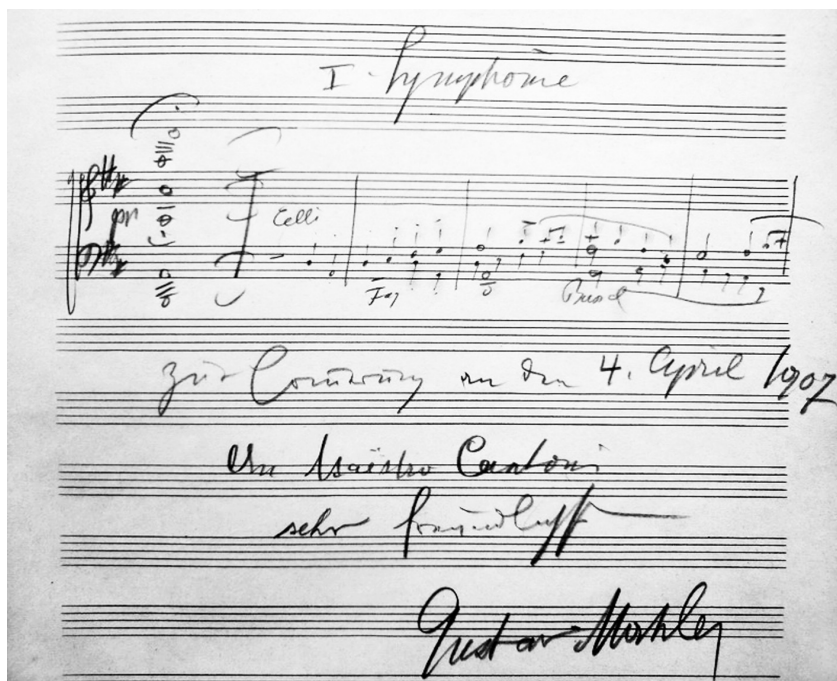 I. Symphonie
pp
Celli
Fag
zur Erinnerung an den 4. April 1907
An Maëstro Cantoni
sehr freundlichst
Gustav Mahler